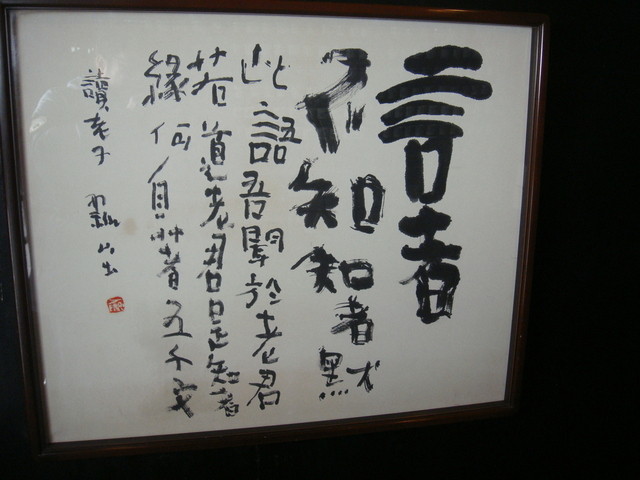 言者
不知知者默
此語吾聞於老君
若道老君是知者
緣何自著五千文
讀老子